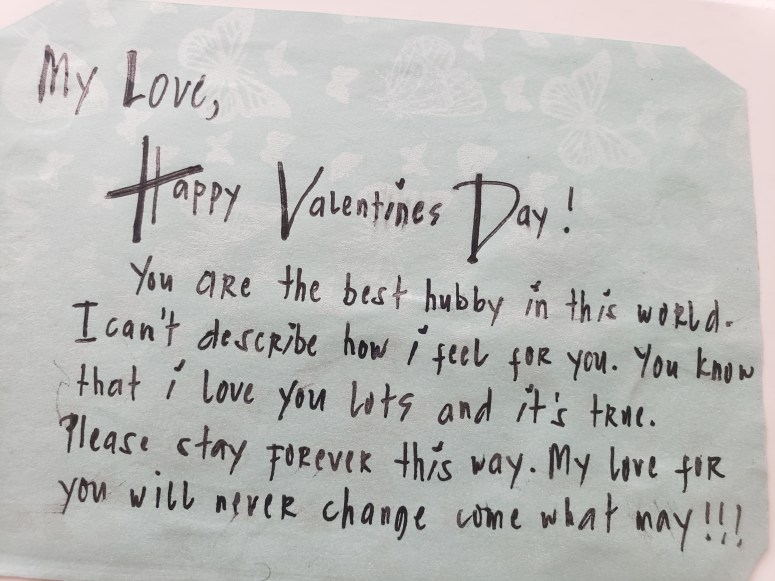 My Love,
Happy Valentines Day!
You are the best hubby in this world.
I can't describe how i feel for you. You know
that i love you lots and it's true.
Please stay forever this way. My love for
you will never change come what may!!!